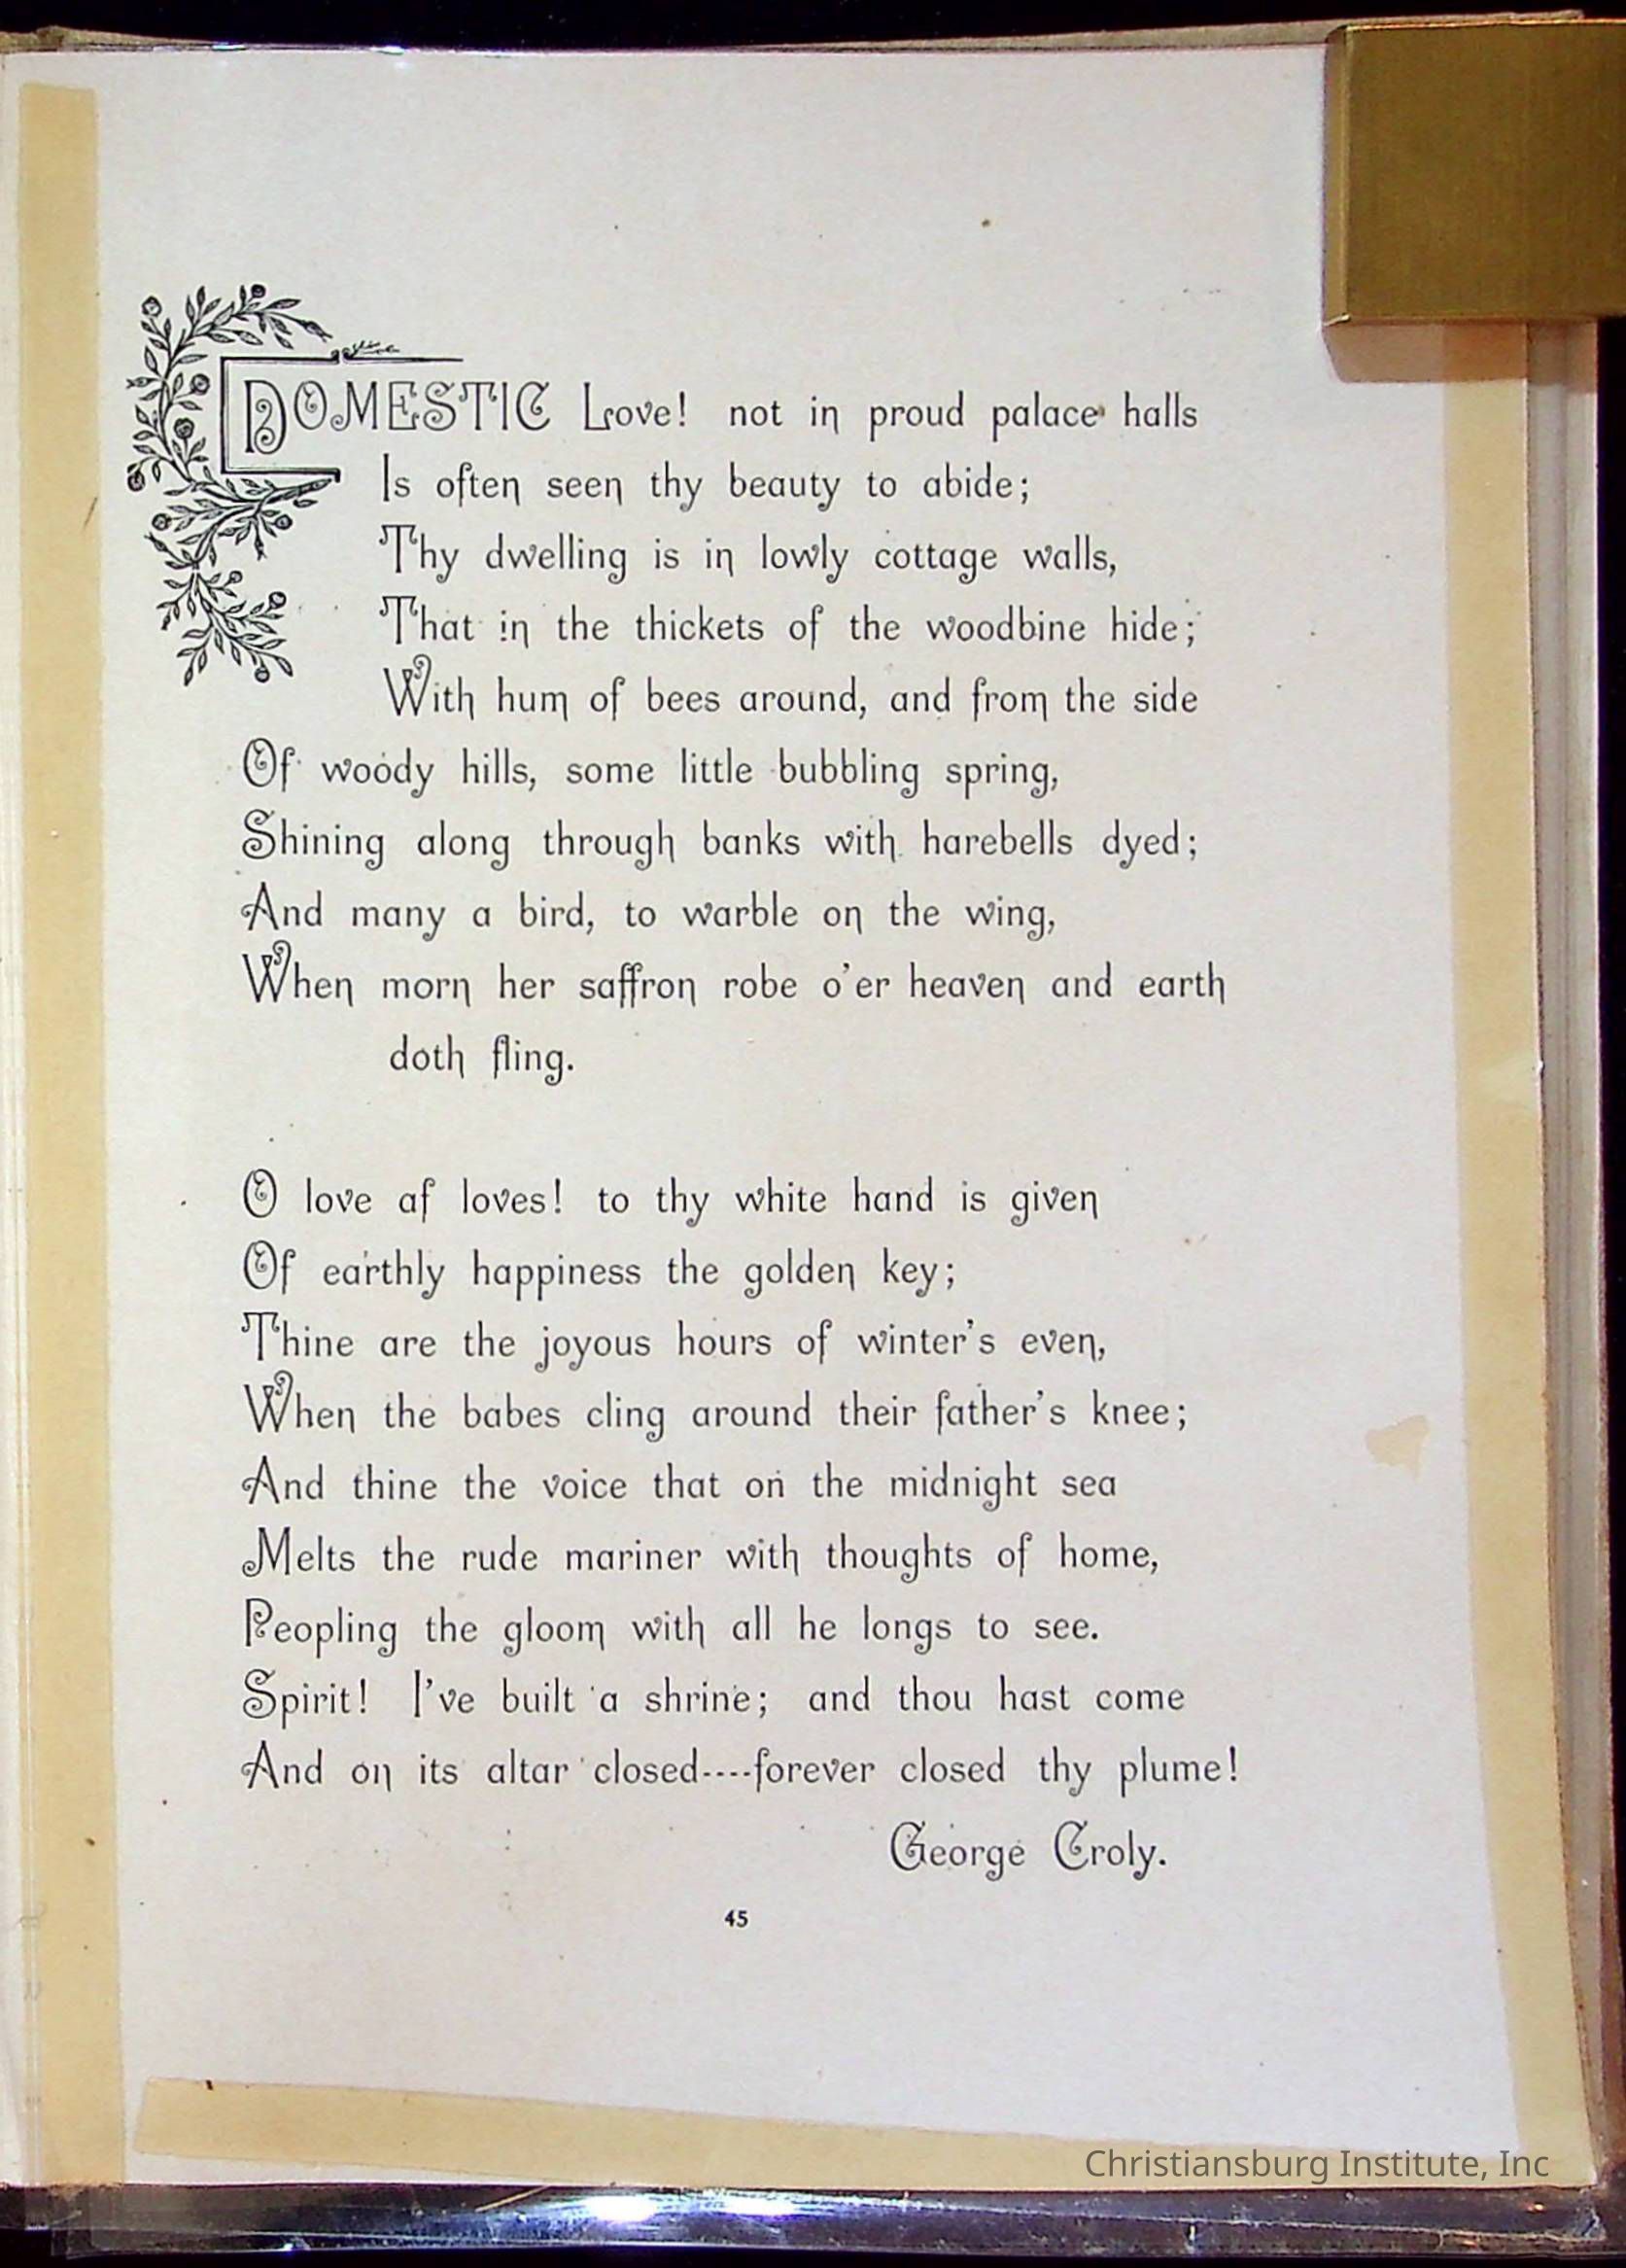 DOMESTIC Love! not in proud palace halls
Is often seen thy beauty to abide;
Thy dwelling is in lowly cottage walls,
That in the thickets of the woodbine hide;
With hum of bees around, and from the side
Of woody hills, some little bubbling spring,
Shining along through banks with harebells dyed;
And many a bird, to warble on the wing,
When morn her saffron robe o'er heaven and earth
doth fling.
O love af loves! to thy white hand is given
Of earthly happiness the golden key;
Thine are the joyous hours of winter's even,
When the babes cling around their father's knee;
And thine the voice that on the midnight sea
Melts the rude mariner with thoughts of home,
Peopling the gloom with all he longs to see.
Spirit! I've built a shrine; and thou hast come
And on its altar closed----forever closed thy plume!
George Croly.
45
Christiansburg Institute, Inc